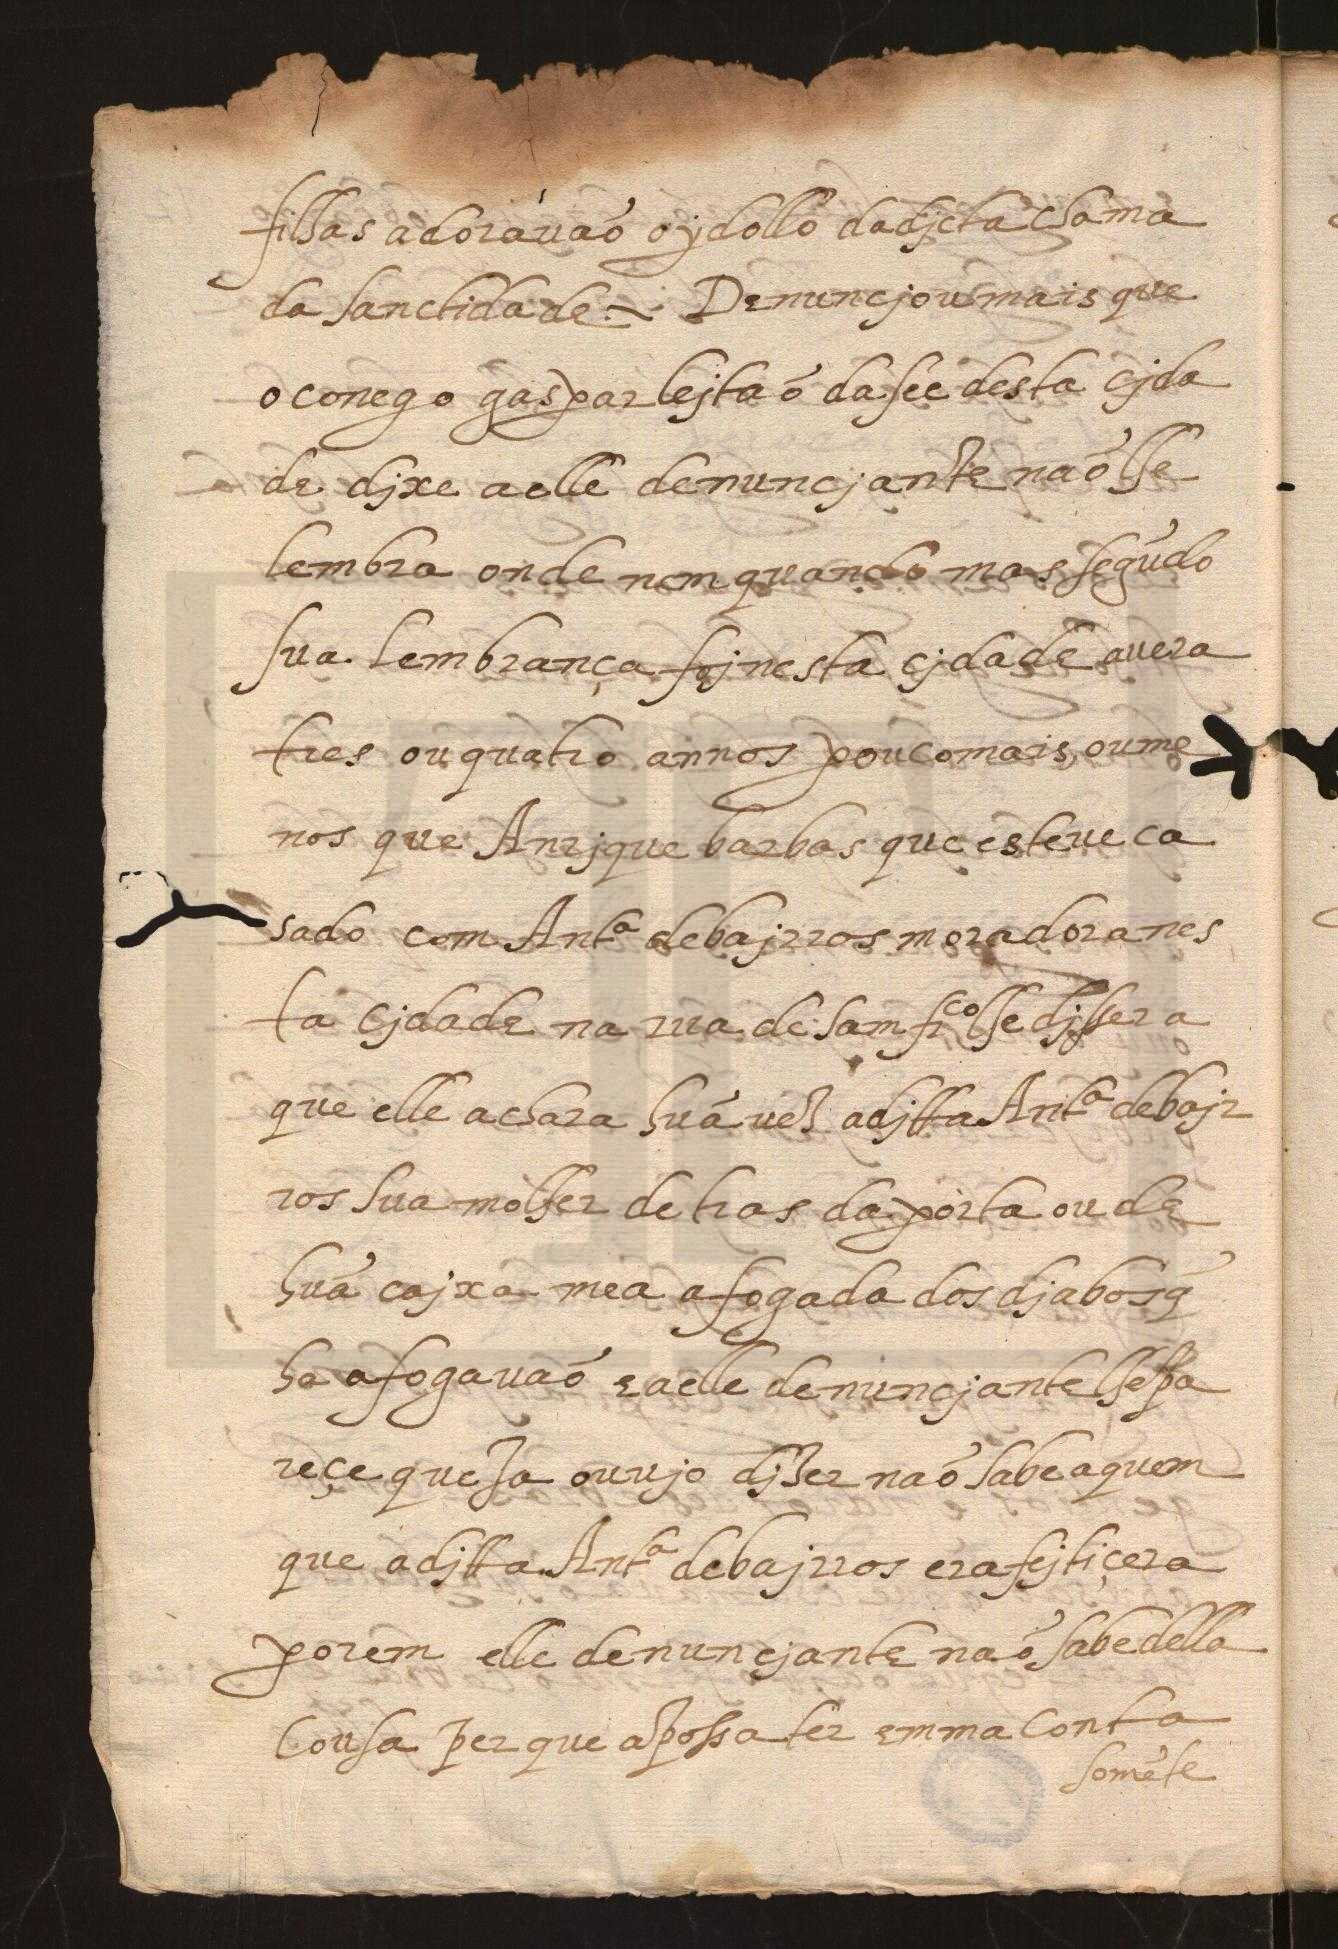 filhas adorauaõ o ydollo da djcta chama
da sanctidade. ~ Denuncjou mais que
o conego gaspar lejtaõ da see desta cjda
de djxe a elle denuncjante naõ lhe
lembra onde nem quando mas segũdo
sua lembrança foj nesta cjdade auera
tres ou quatro annos pouco mais ou me
nos que Anrjque barbas que esteue ca
sado com Ant.ª de bajrros moradora nes
ta cjdade na rua de sam fr.co lhe djssera
que elle achara hũa uez a djtta Ant.ª de bajr
ros sua molher detras da porta ou de
hũa cajxa mea afogada dos djabos q̃
ha afogauaõ e a elle denuncjante lhe pa
reçe que ja ouujo djzer naõ sabe a quem
que a djtta Ant.ª de bajrros era fejtiçera
porem elle denuncjante naõ sabe della
cousa per que a possa ter em ma conta
somẽte